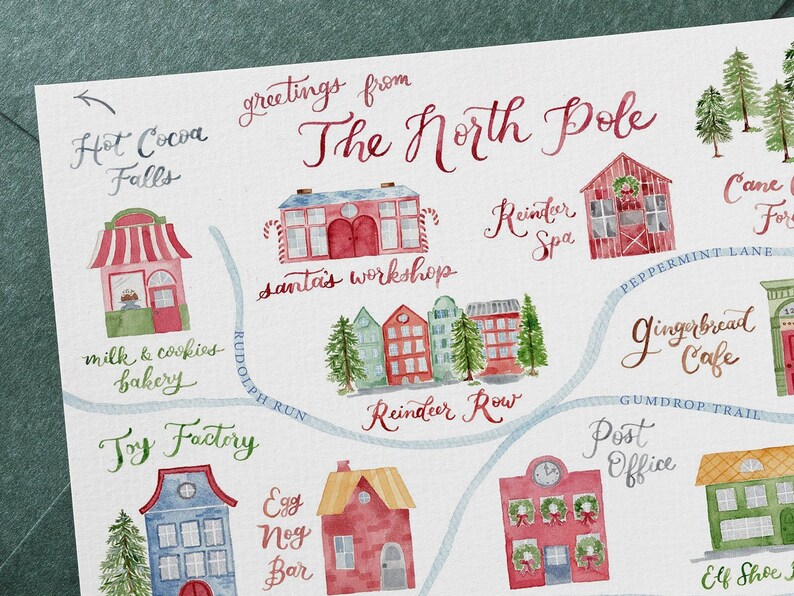 greetings from
The North Pole
Hot Cocoa
Falls
Cane
Reindeer
Spa
santa's workshop
PEPPERMINT LANE
milk & cookies
bakery
RUDOLPH RUN
Reindeer Row
gingerbread
Cafe
GUMDROP TRAIL
Toy Factory
Post
Office
Egg
Nog
Bar
Elf Shoe